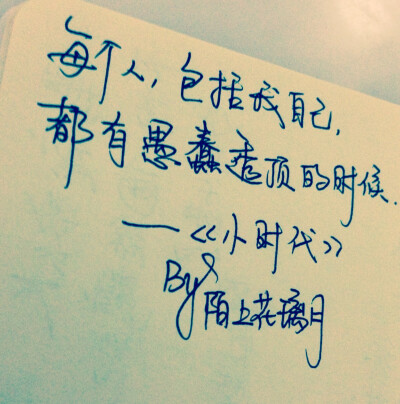 每个人,包括我自己,
都有愚蠢透顶的时候.
——《小时代》
By 陌上花璃月